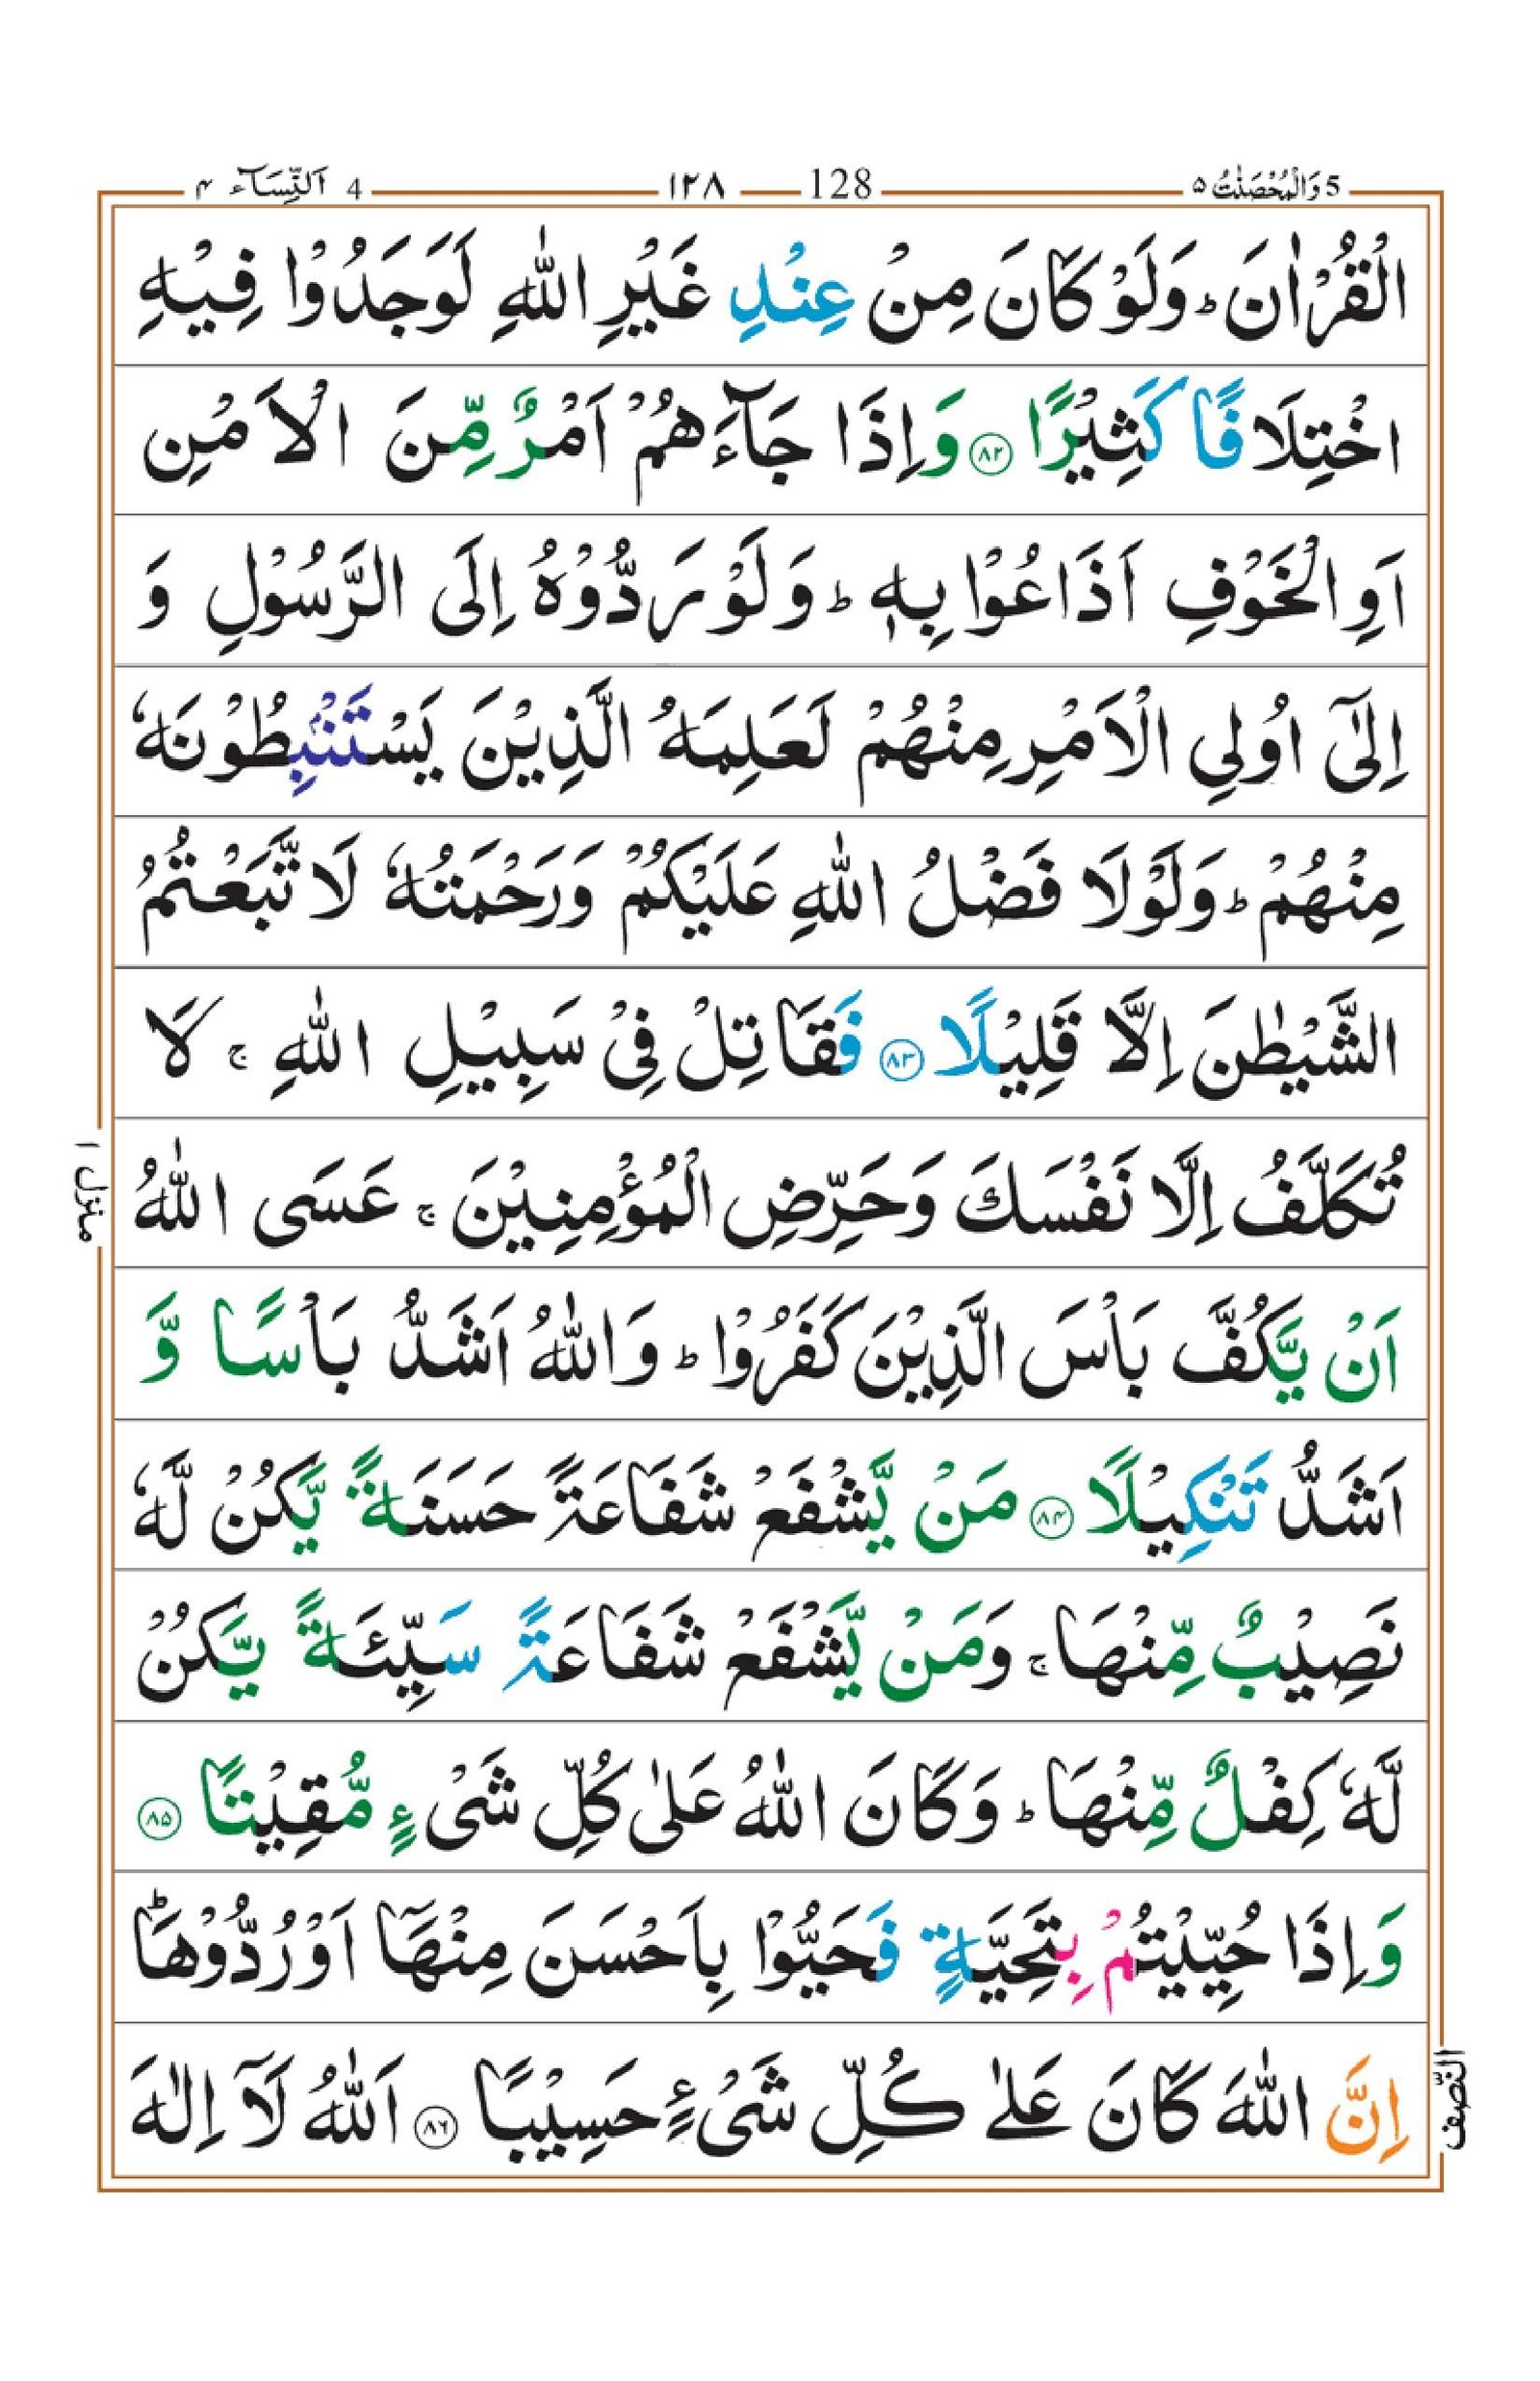 5 وَالْمُحْصَنٰتُ ۵ 128 ۱۲۸ 4 اَلنِّسَآء ۴
الْقُرْاٰنَ ؕ وَلَوْ كَانَ مِنْ عِنْدِ غَيْرِ اللّٰهِ لَوَجَدُوْا فِيْهِ
اخْتِلَافًا كَثِيْرًا ۸۲ وَاِذَا جَآءَهُمْ اَمْرٌ مِّنَ الْاَمْنِ
اَوِ الْخَوْفِ اَذَاعُوْا بِهٖ ؕ وَلَوْ رَدُّوْهُ اِلَى الرَّسُوْلِ وَ
اِلٰٓى اُولِى الْاَمْرِ مِنْهُمْ لَعَلِمَهُ الَّذِيْنَ يَسْتَنْۢبِطُوْنَهٗ
مِنْهُمْ ؕ وَلَوْلَا فَضْلُ اللّٰهِ عَلَيْكُمْ وَرَحْمَتُهٗ لَا تَّبَعْتُمُ
الشَّيْطٰنَ اِلَّا قَلِيْلًا ۸۳ فَقَاتِلْ فِىْ سَبِيْلِ اللّٰهِ ۚ لَا
تُكَلَّفُ اِلَّا نَفْسَكَ وَحَرِّضِ الْمُؤْمِنِيْنَ ۚ عَسَى اللّٰهُ
اَنْ يَّكُفَّ بَاْسَ الَّذِيْنَ كَفَرُوْا ؕ وَاللّٰهُ اَشَدُّ بَاْسًا وَّ
اَشَدُّ تَنْكِيْلًا ۸۴ مَنْ يَّشْفَعْ شَفَاعَةً حَسَنَةً يَّكُنْ لَّهٗ
نَصِيْبٌ مِّنْهَا ۚ وَمَنْ يَّشْفَعْ شَفَاعَةً سَيِّئَةً يَّكُنْ
لَّهٗ كِفْلٌ مِّنْهَا ؕ وَكَانَ اللّٰهُ عَلٰى كُلِّ شَىْءٍ مُّقِيْتًا ۸۵
وَاِذَا حُيِّيْتُمْ بِتَحِيَّةٍ فَحَيُّوْا بِاَحْسَنَ مِنْهَآ اَوْ رُدُّوْهَا ؕ
اِنَّ اللّٰهَ كَانَ عَلٰى كُلِّ شَىْءٍ حَسِيْبًا ۸۶ اَللّٰهُ لَآ اِلٰهَ
منزل ۱
النّصف